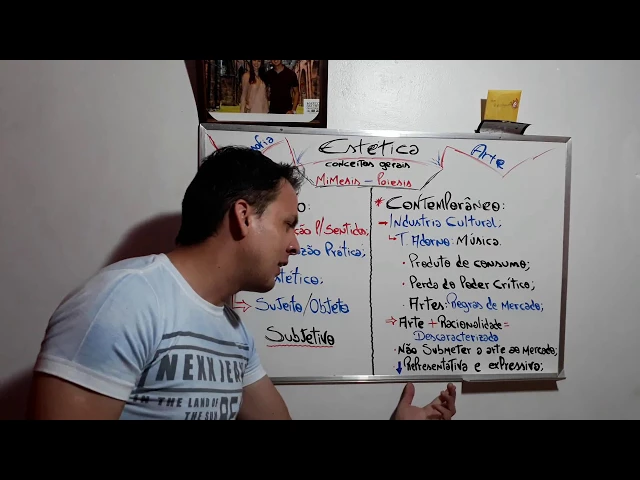 Estética
conceitos gerais
Mimesis - Poiesis
Arte
P/Sentidos;
Prática;
Sujeito/Objeto
Subjetivo
* Contemporâneo:
→ Industria Cultural;
↳ T. Adorno: Música.
• Produto de consumo;
• Perda do Poder Crítico;
• Artes: Regras de Mercado;
⇒ Arte + Racionalidade =
Descaracterizada
• Não Submeter a arte ao Mercado;
↓ Representativa e expressiva;
NEXX JEANS
IN THE LAND OF
THE SUN